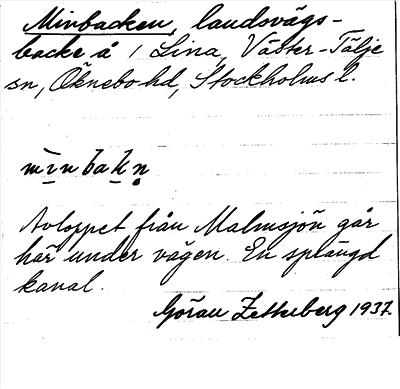 Minbacken, landsvägs-
backe å 1 Lina, Väster-Tälje
sn, Öknebo hd, Stockholms l.
mìnbakn̥
Avloppet från Malmsjön går
här under vägen. En sprängd
kanal.
Göran Zetterberg 1937.